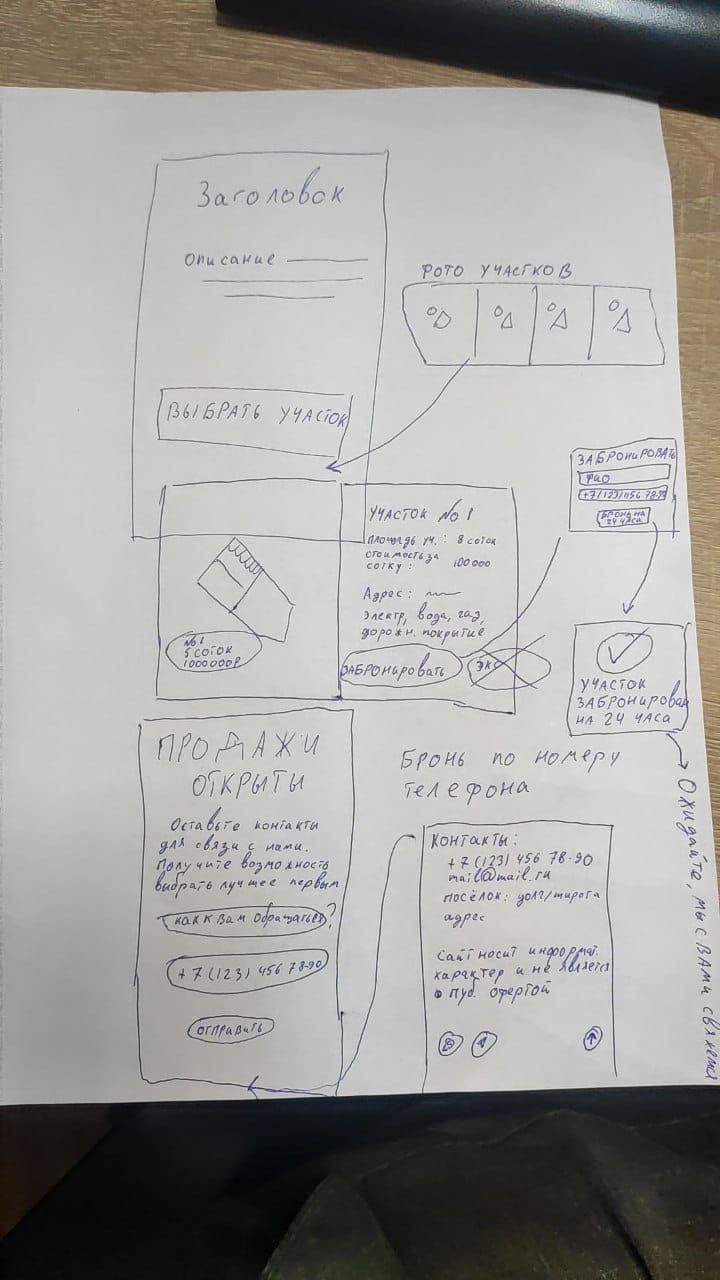 Заголовок
описание
ВЫБРАТЬ УЧАСТОК
ФОТО УЧАСТКОВ
УЧАСТОК №1
площадь уч.: 8 соток
стоимость за
сотку: 100 000
Адрес:
Электр, вода, газ,
дорожн. покрытие
ЗАБРОНИРОВАТЬ
ЭКС
№1
5 СОТОК
1000000₽
ЗАБРОНИРОВАТЬ
ФИО
+7(123)456 78-90
БРОНЬ НА
24 ЧАСА
УЧАСТОК
ЗАБРОНИРОВАН
НА 24 ЧАСА
Ожидайте, мы с Вами свяжемся
ПРОДАЖИ
ОТКРЫТЫ
Оставьте контакты
для связи с нами.
Получите возможность
выбрать лучшее первым
как к вам обращаться?
+7 (123) 456 78-90
отправить
Бронь по номеру
телефона
Контакты:
+7 (123) 456 78-90
mail@mail.ru
посёлок: долг/широта
адрес
Сайт носит информат.
характер и не является
пуб. офертой